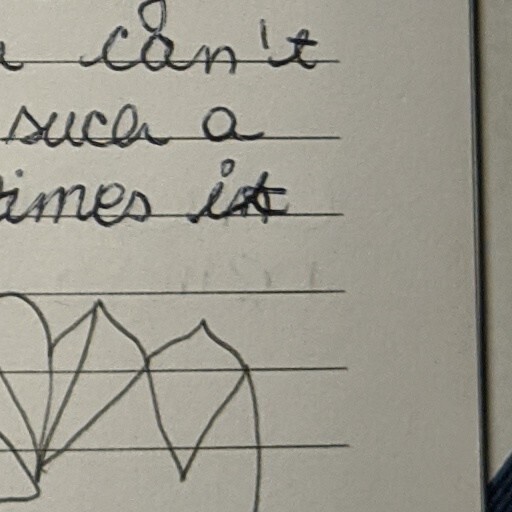 can't
such a
times it